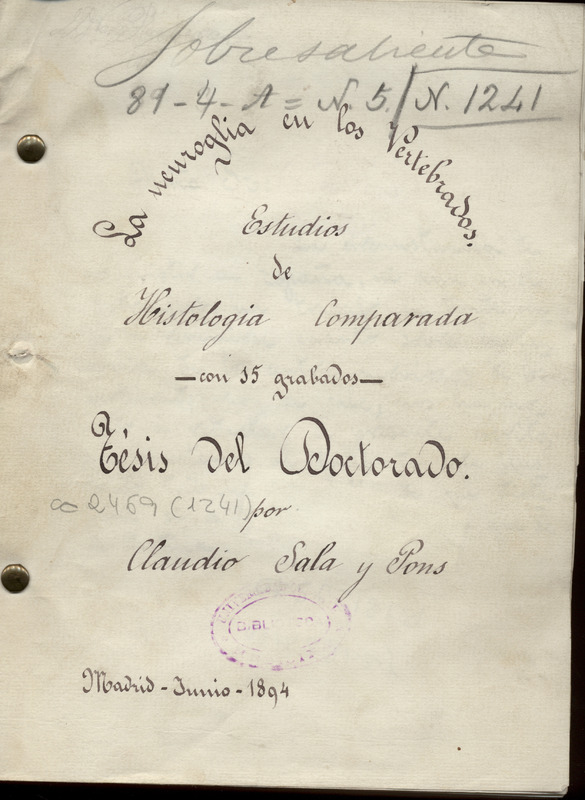 Sobresaliente
89-4-A = N. 5. / N. 1241
La neuroglia en los Vertebrados.
Estudios
de
Histologia Comparada
—con 35 grabados—
Tésis del Doctorado.
ca 2469 (1241) por
Claudio Sala y Pons
BIBLIOTECA
Madrid - Junio - 1894